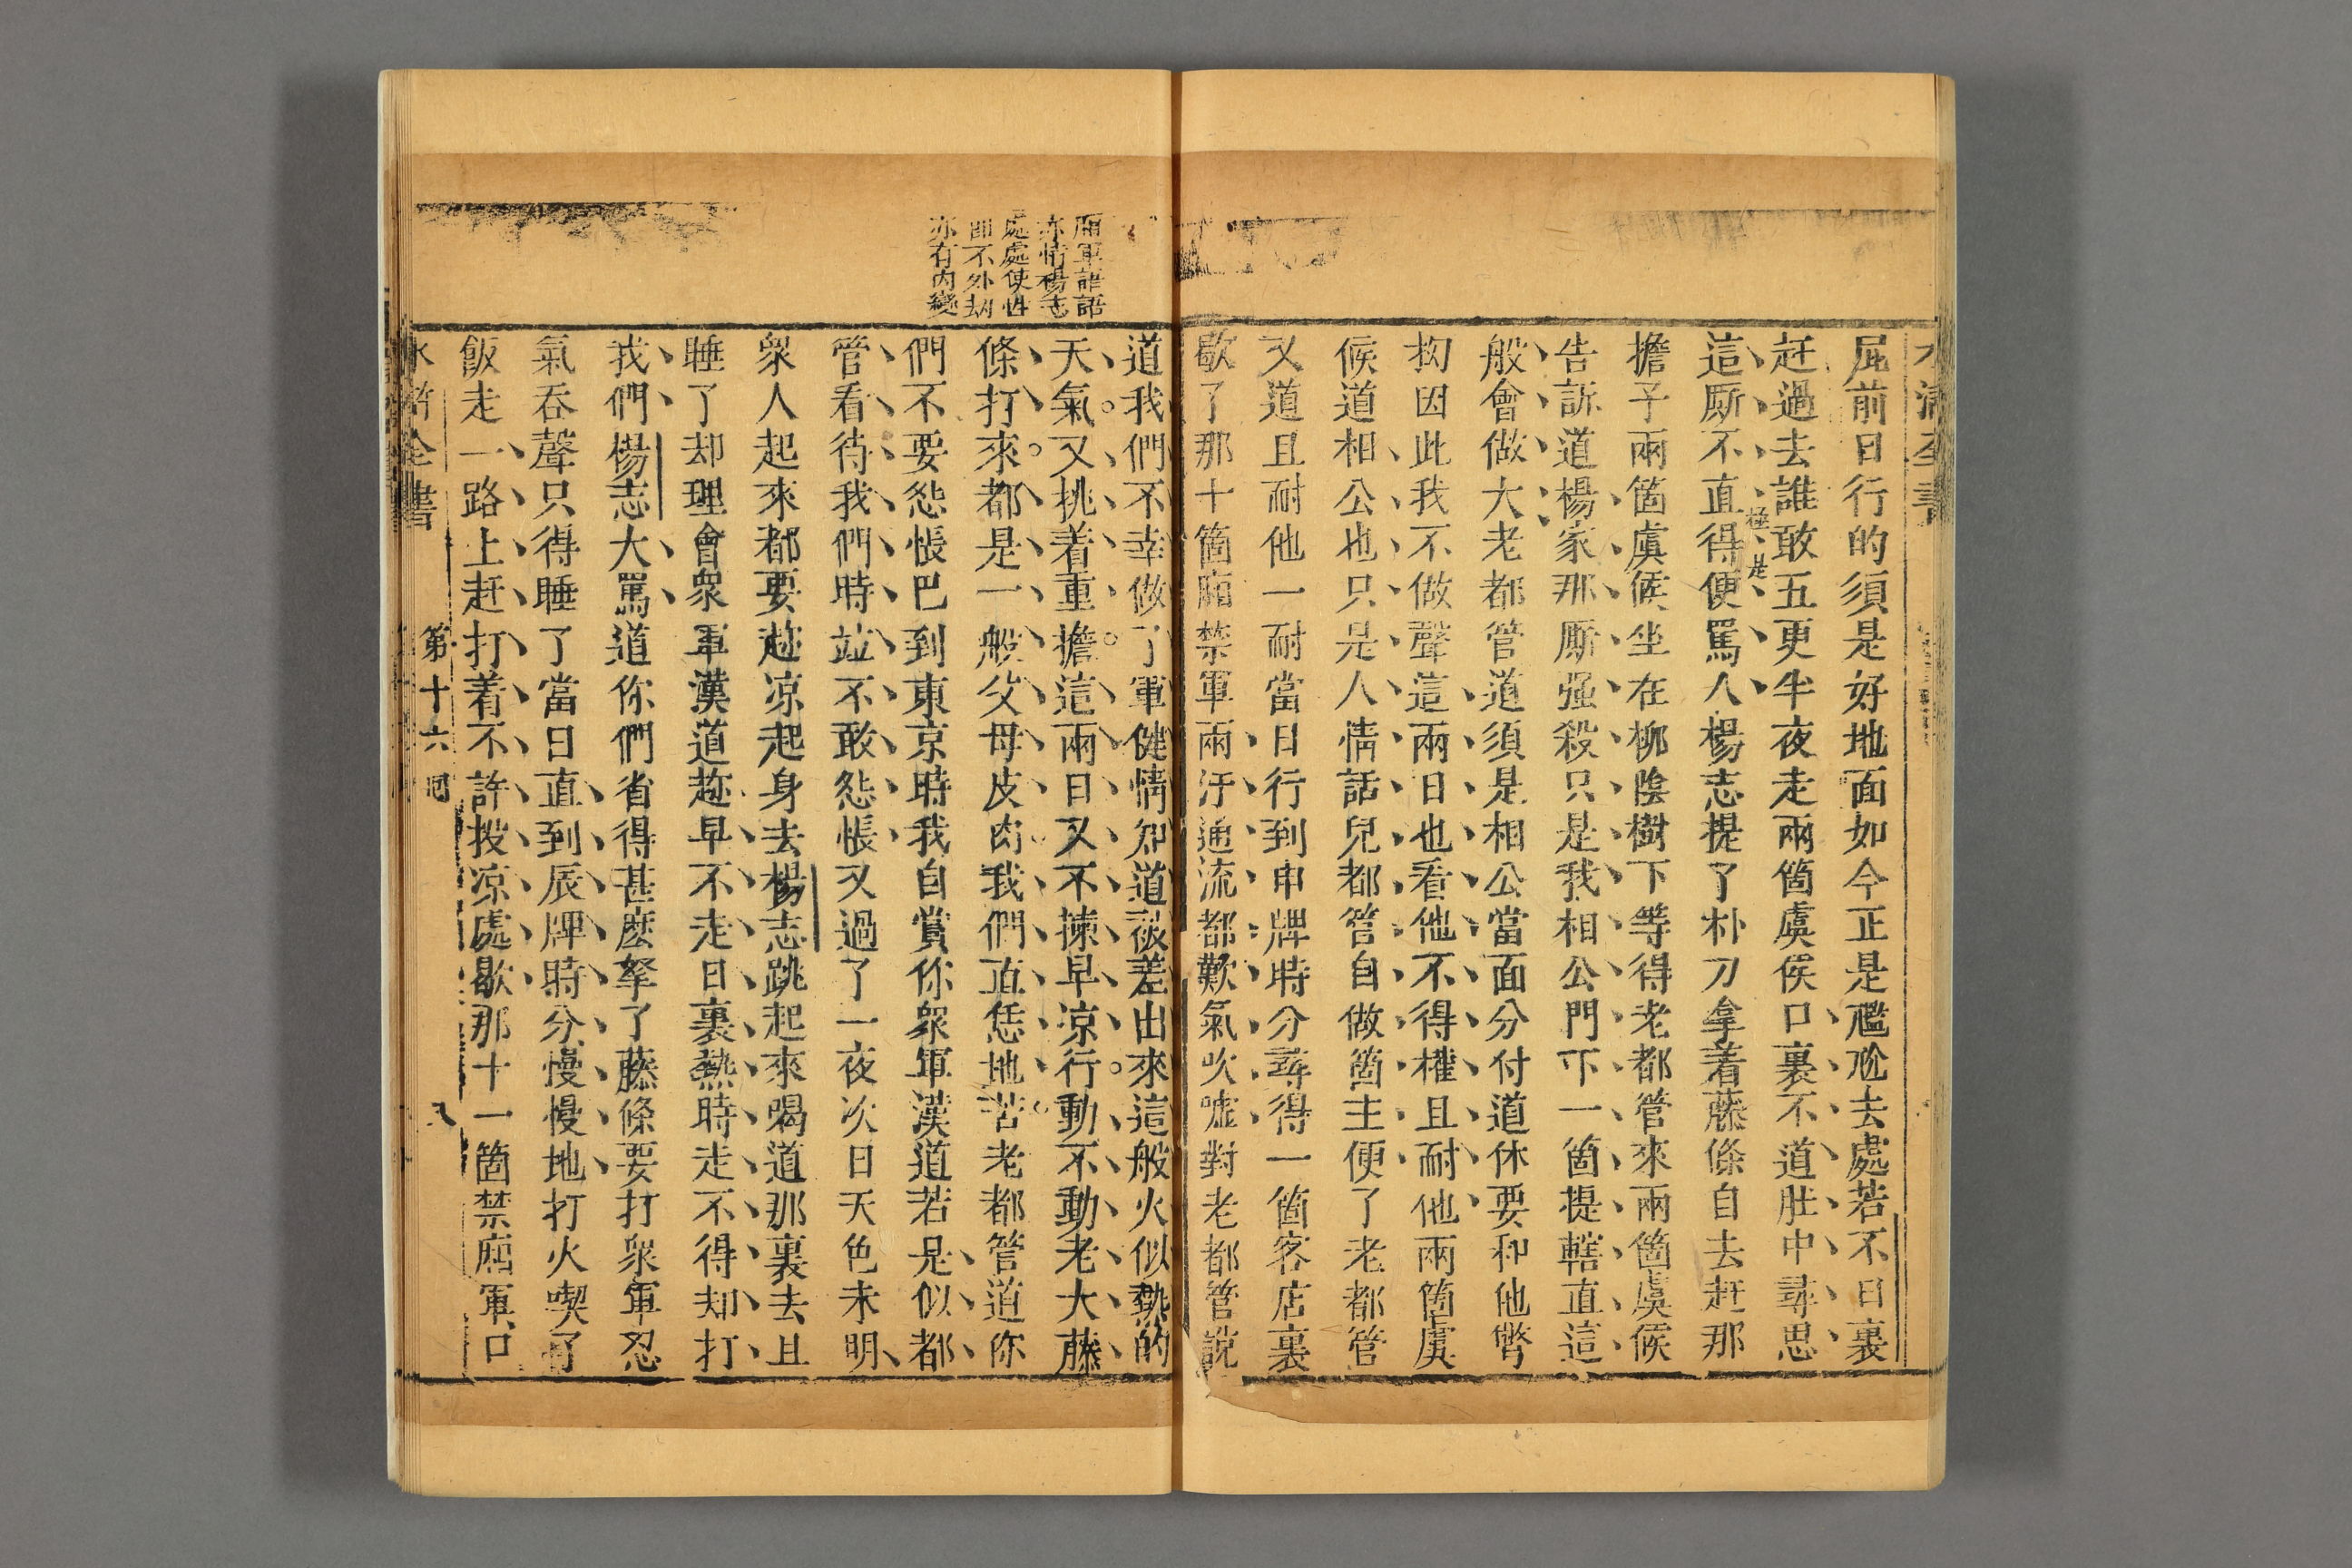 水滸全書
屁前日行的須是好地面如今正是尷尬去處若不日裏
赶過去誰敢五更半夜走兩箇虞候口裏不道肚中尋思
這厮不直得便罵人楊志提了朴刀拿着藤條自去赶那
極是
擔子兩箇虞候坐在柳陰樹下等得老都管來兩箇虞候
告訴道楊家那厮强殺只是我相公門下一箇提轄直這
般會做大老都管道須是相公當面分付道休要和他彆
拗因此我不做聲這兩日也看他不得權且耐他兩箇虞
候道相公也只是人情話兒都管自做箇主便了老都管
又道且耐他一耐當日行到申牌時分尋得一箇客店裏
歇了那十箇廂禁軍兩汗通流都歎氣吹噓對老都管説
廂軍訴語
亦情楊志
處處使性
即不外刼
亦有内變
道我們不幸做了軍健情知道被差出來這般火似熱的
天氣又挑着重擔這兩日又不揀早凉行動不動老大藤
條打來都是一般父母皮肉我們直恁地苦老都管道你
們不要怨悵巴到東京時我自賞你衆軍漢道若是似都
管看待我們時並不敢怨悵又過了一夜次日天色未明
衆人起來都要趂凉起身去楊志跳起來喝道那裏去且
睡了却理會衆軍漢道趂早不走日裏熱時走不得却打
我們楊志大罵道你們省得甚麽拏了藤條要打衆軍忍
氣吞聲只得睡了當日直到辰牌時分慢慢地打火喫了
飯走一路上赶打着不許投凉處歇那十一箇禁廂軍口
水滸全書 第十六回 八